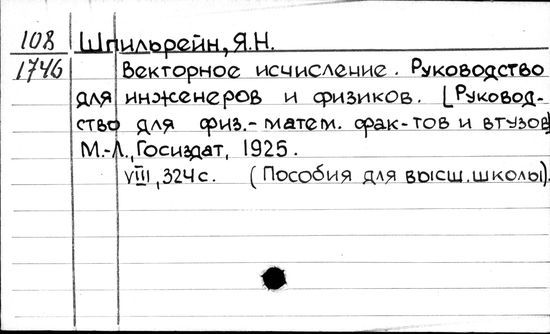 108 Шпильрейн, Я.Н.
1746 Векторное исчисление. Руководство
для инженеров и физиков. [Руковод-
ство для физ.-матем. фак-тов и втузов]
М.-Л., Госиздат, 1925.
VIII, 324 с. (Пособия для высш. школы).